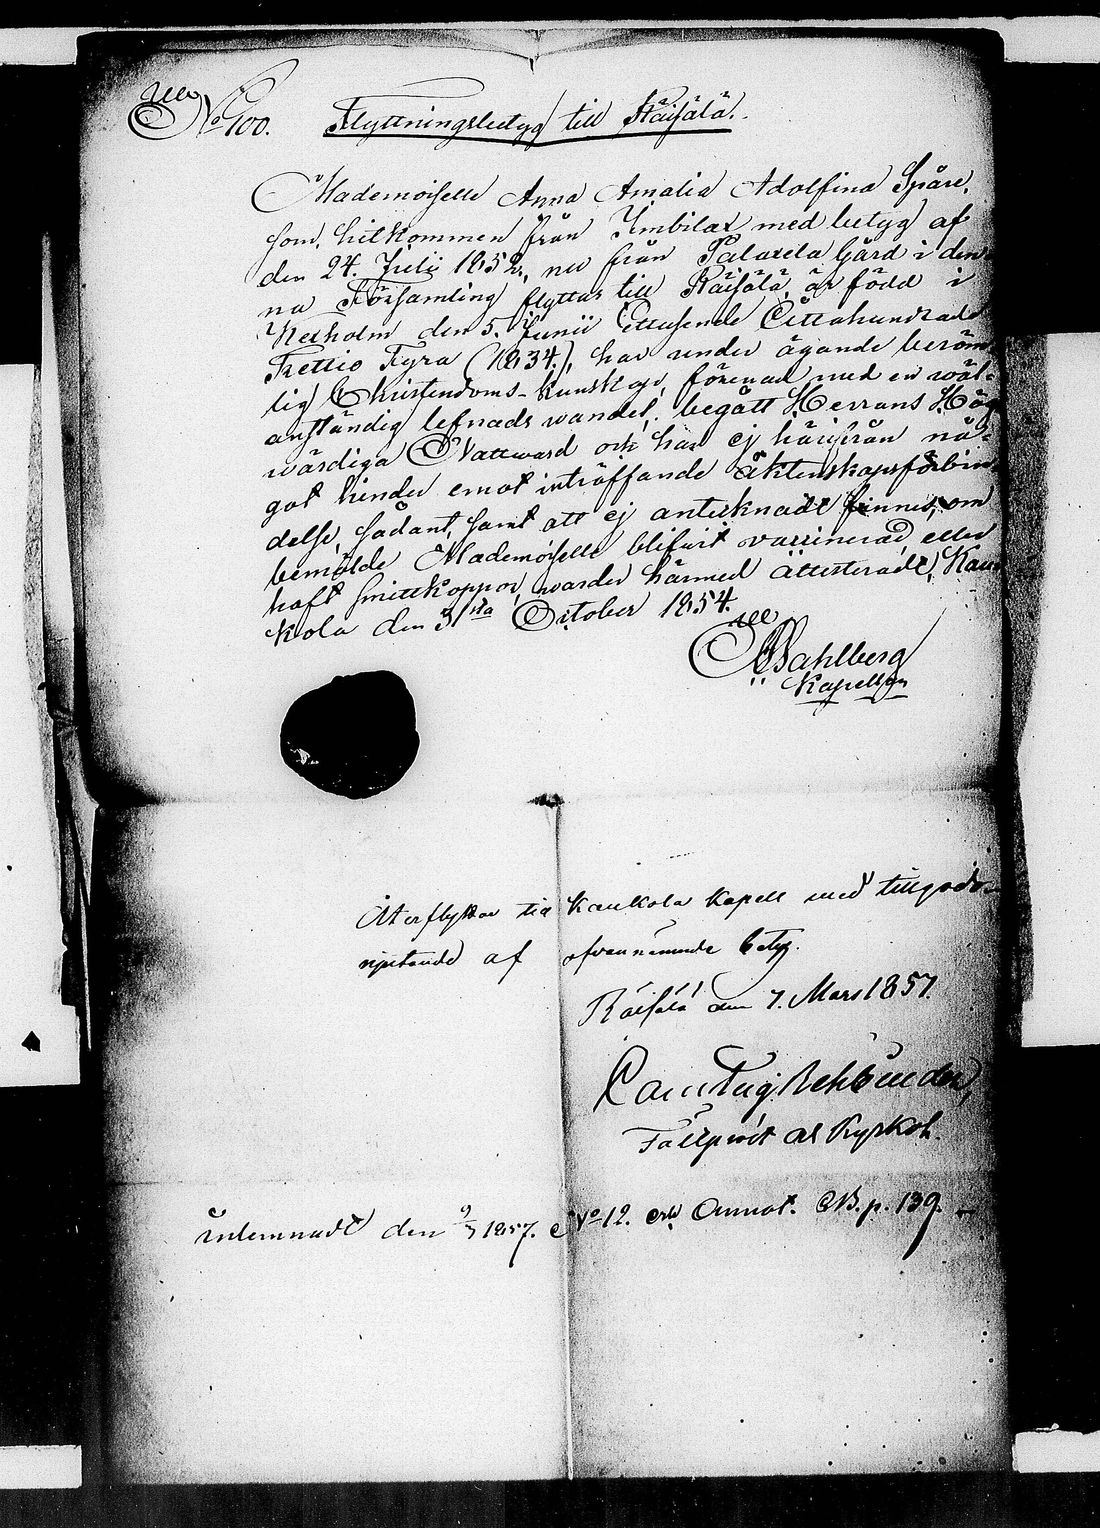 No 100. Flyttningsbetyg till Räisälä.
Mademoiselle Anna Amalia Adolfina Spåre,
som, hitkommen från Imbilax med betyg af
den 24. Julii 1852, nu från Palaxela Gård i den-
na Församling flyttar till Räisälä, är född i
Kexholm den 5. Junii Ettusende Åttahundrade
Trettio Fyra (1834.), har under ägande beröm-
lig Christendoms-kunskap, förenad med en wäl-
anständig lefnads wandel, begått Herrans Hög-
wärdiga Nattward och har ej härifrån nå-
got hinder emot inträffande äktenskapsförbin-
delse, sådant, samt att ej antecknadt finnes, om
bemälde Mademoiselle blifvit vaccinerad eller
haft smittkoppor, warder härmed attesteradt, Kau-
kola den 31sta October 1854.
Wahlberg
Kapellan
Återflyttar till Kaukola kapell med tillgodo-
njutande af ofvannämnde betyg.
Räisälä den 7. Mars 1857.
Rehbinder,
Tillf. af Kyrkoh.
Inlemnadt den 9/3 1857. No 12. Annot. CB. p. 139.